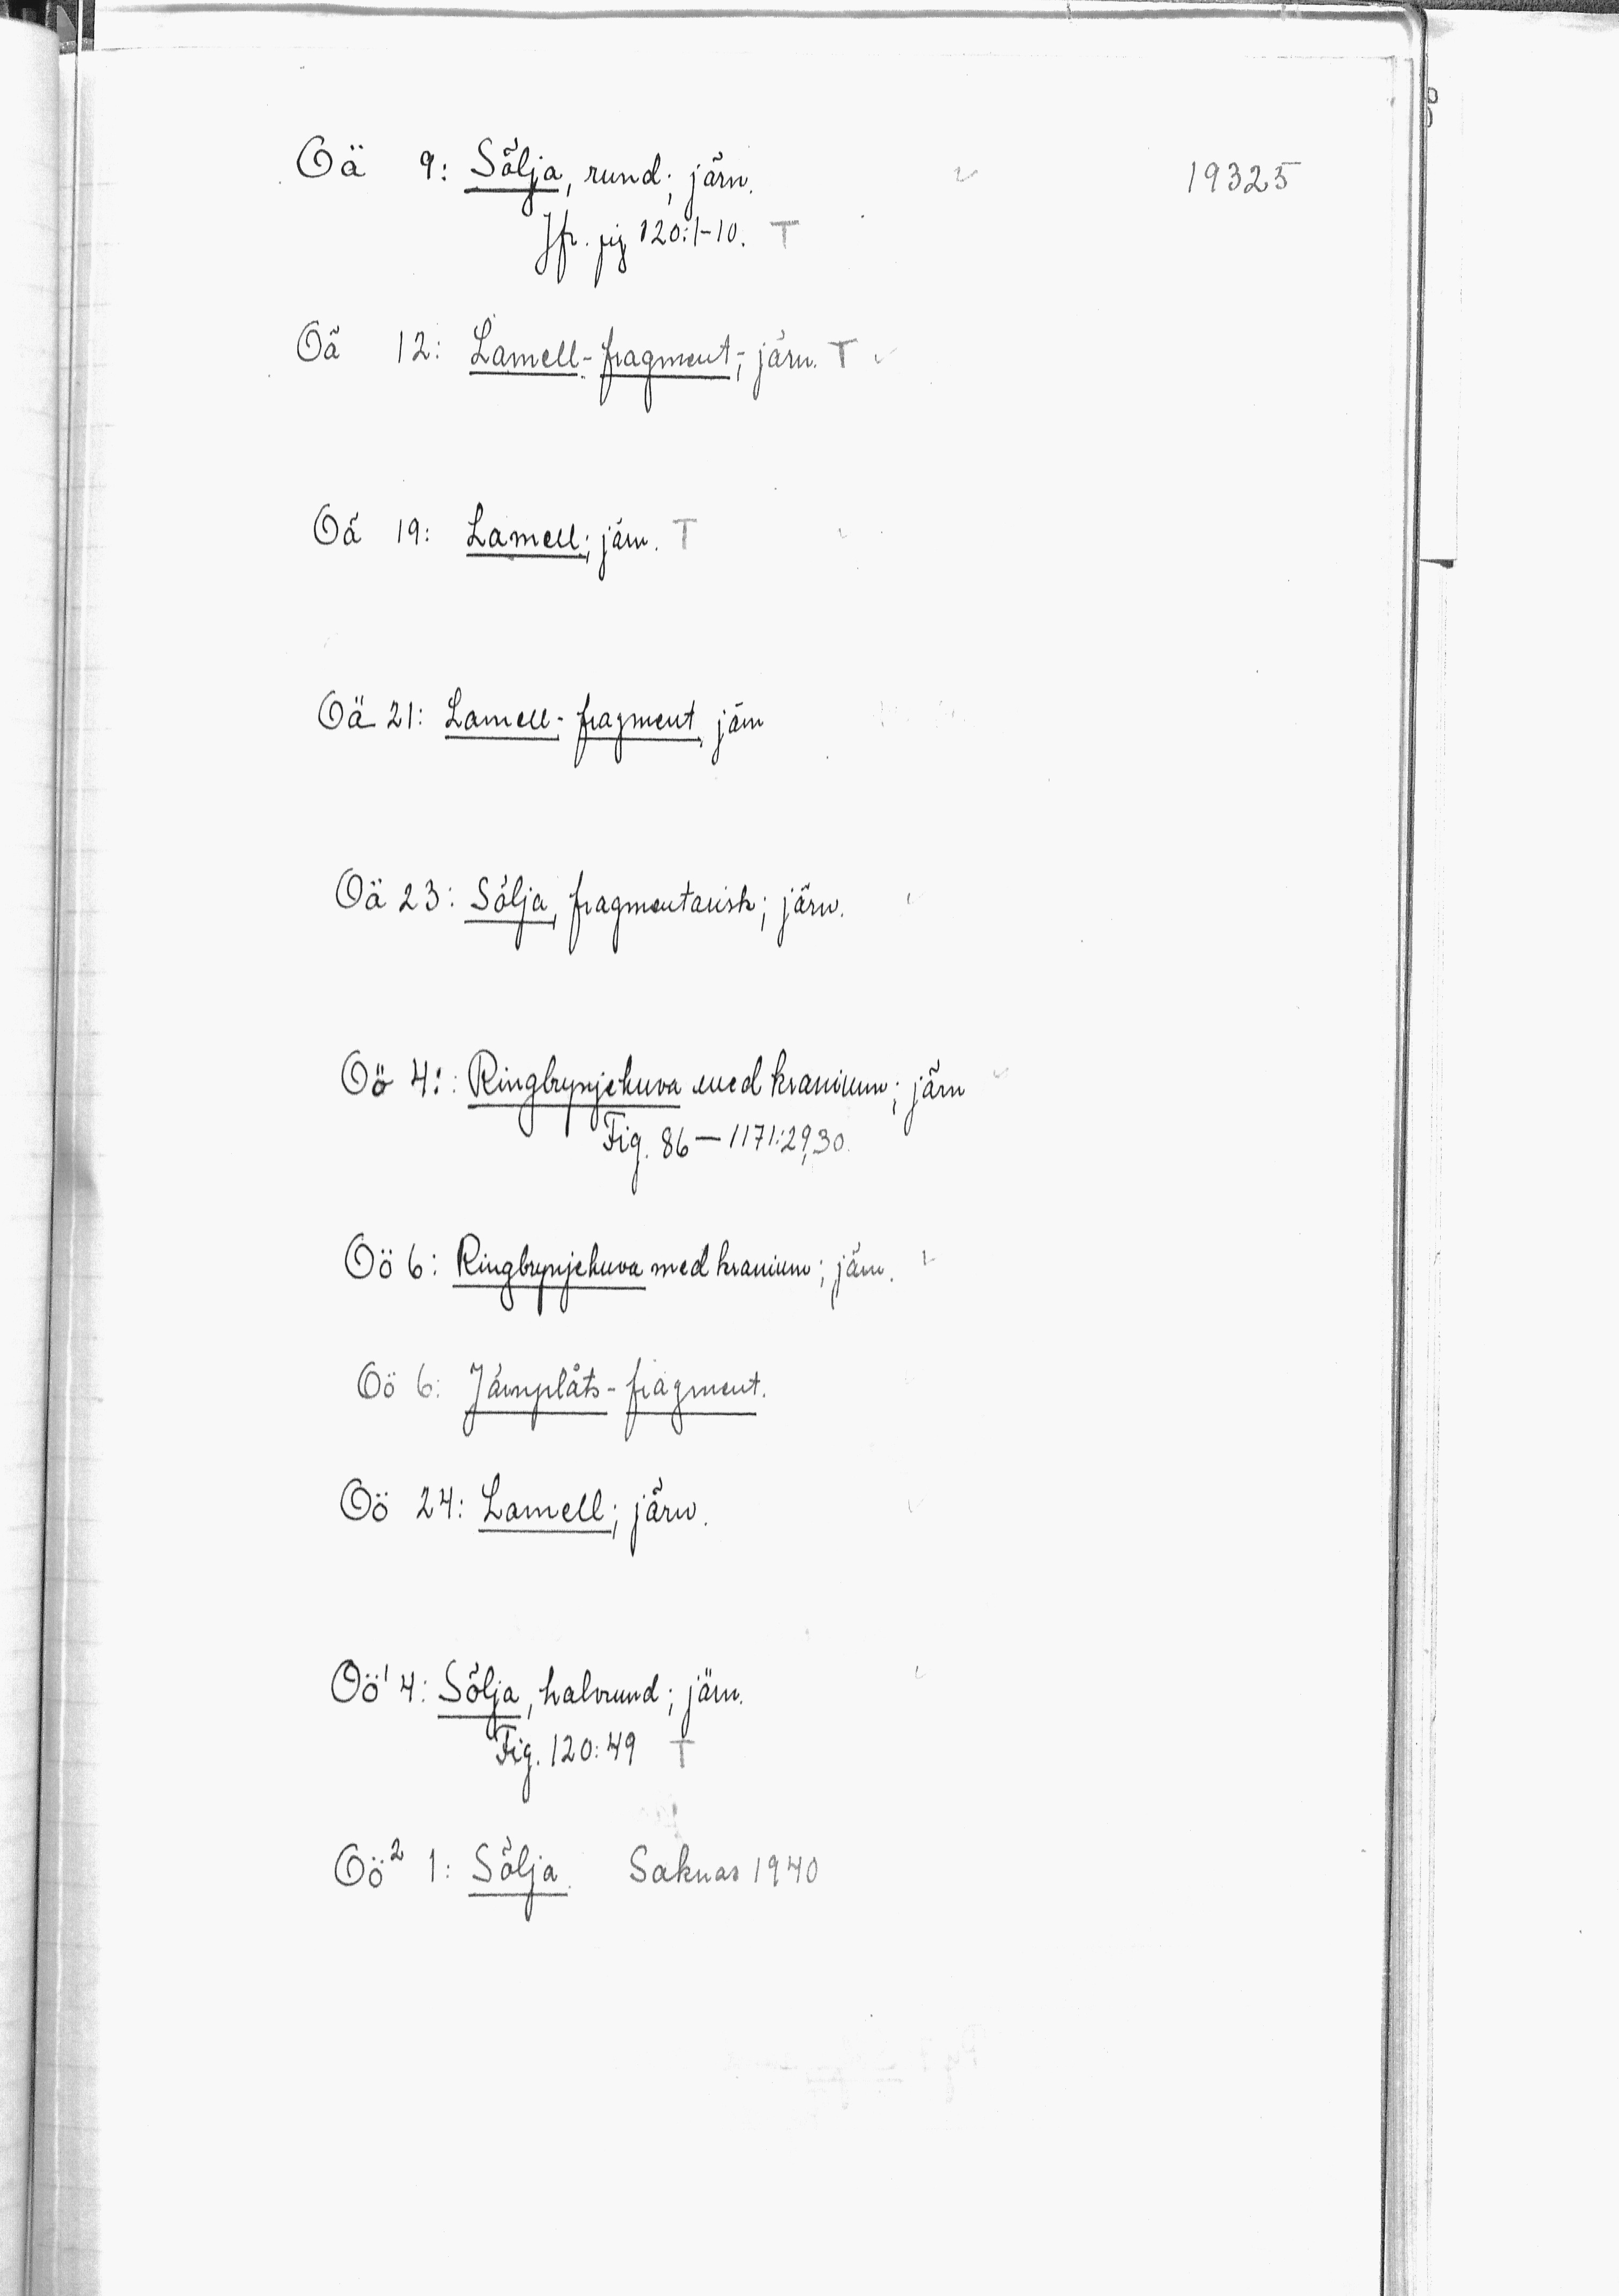 Oä 9: Sölja, rund; järn. ✓ 19325
Jfr. fig 120:1-10. T
Oä 12: Lamell-fragment; järn. T ✓
Oä 19: Lamell; järn. T
Oä 21: Lamell-fragment, järn
Oä 23: Sölja, fragmentarisk; järn.
Oö 4: Ringbrynjehuva med kranium; järn ✓
Fig. 86 — 1171:29,30.
Oö 6: Ringbrynjehuva med kranium; järn.
Oö 6: Järnplåts-fragment.
Oö 24: Lamell; järn. ✓
Oö¹ 4: Sölja, halvrund; järn.
Fig. 120:49 T
Oö² 1: Sölja. Saknas 1940